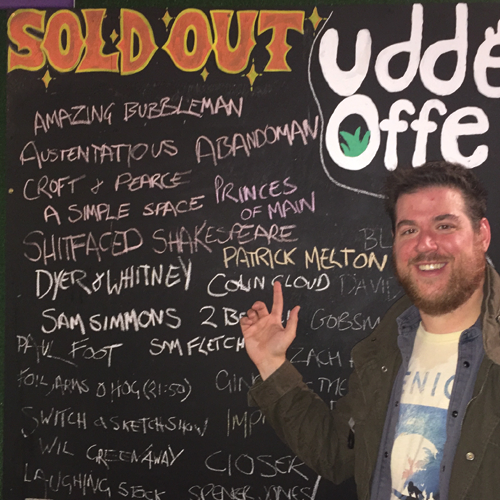 SOLD OUT
udde
Offe
AMAZING BUBBLEMAN
AUSTENTATIOUS ABANDOMAN
CROFT & PEARCE PRINCES
A SIMPLE SPACE OF MAIN
SHITFACED SHAKESPEARE
PATRICK MELTON BL
DYER & WHITNEY COLIN CLOUD DAVID
SAM SIMMONS 2 GOBSM
PAUL FOOT SAM FLETCH ZACH
FOIL, ARMS & HOG (21:50)
SWITCH A SKETCH SHOW IMP
WIL GREENWAY CLOSER
LAUGHING SPENCER JONES
ENIC